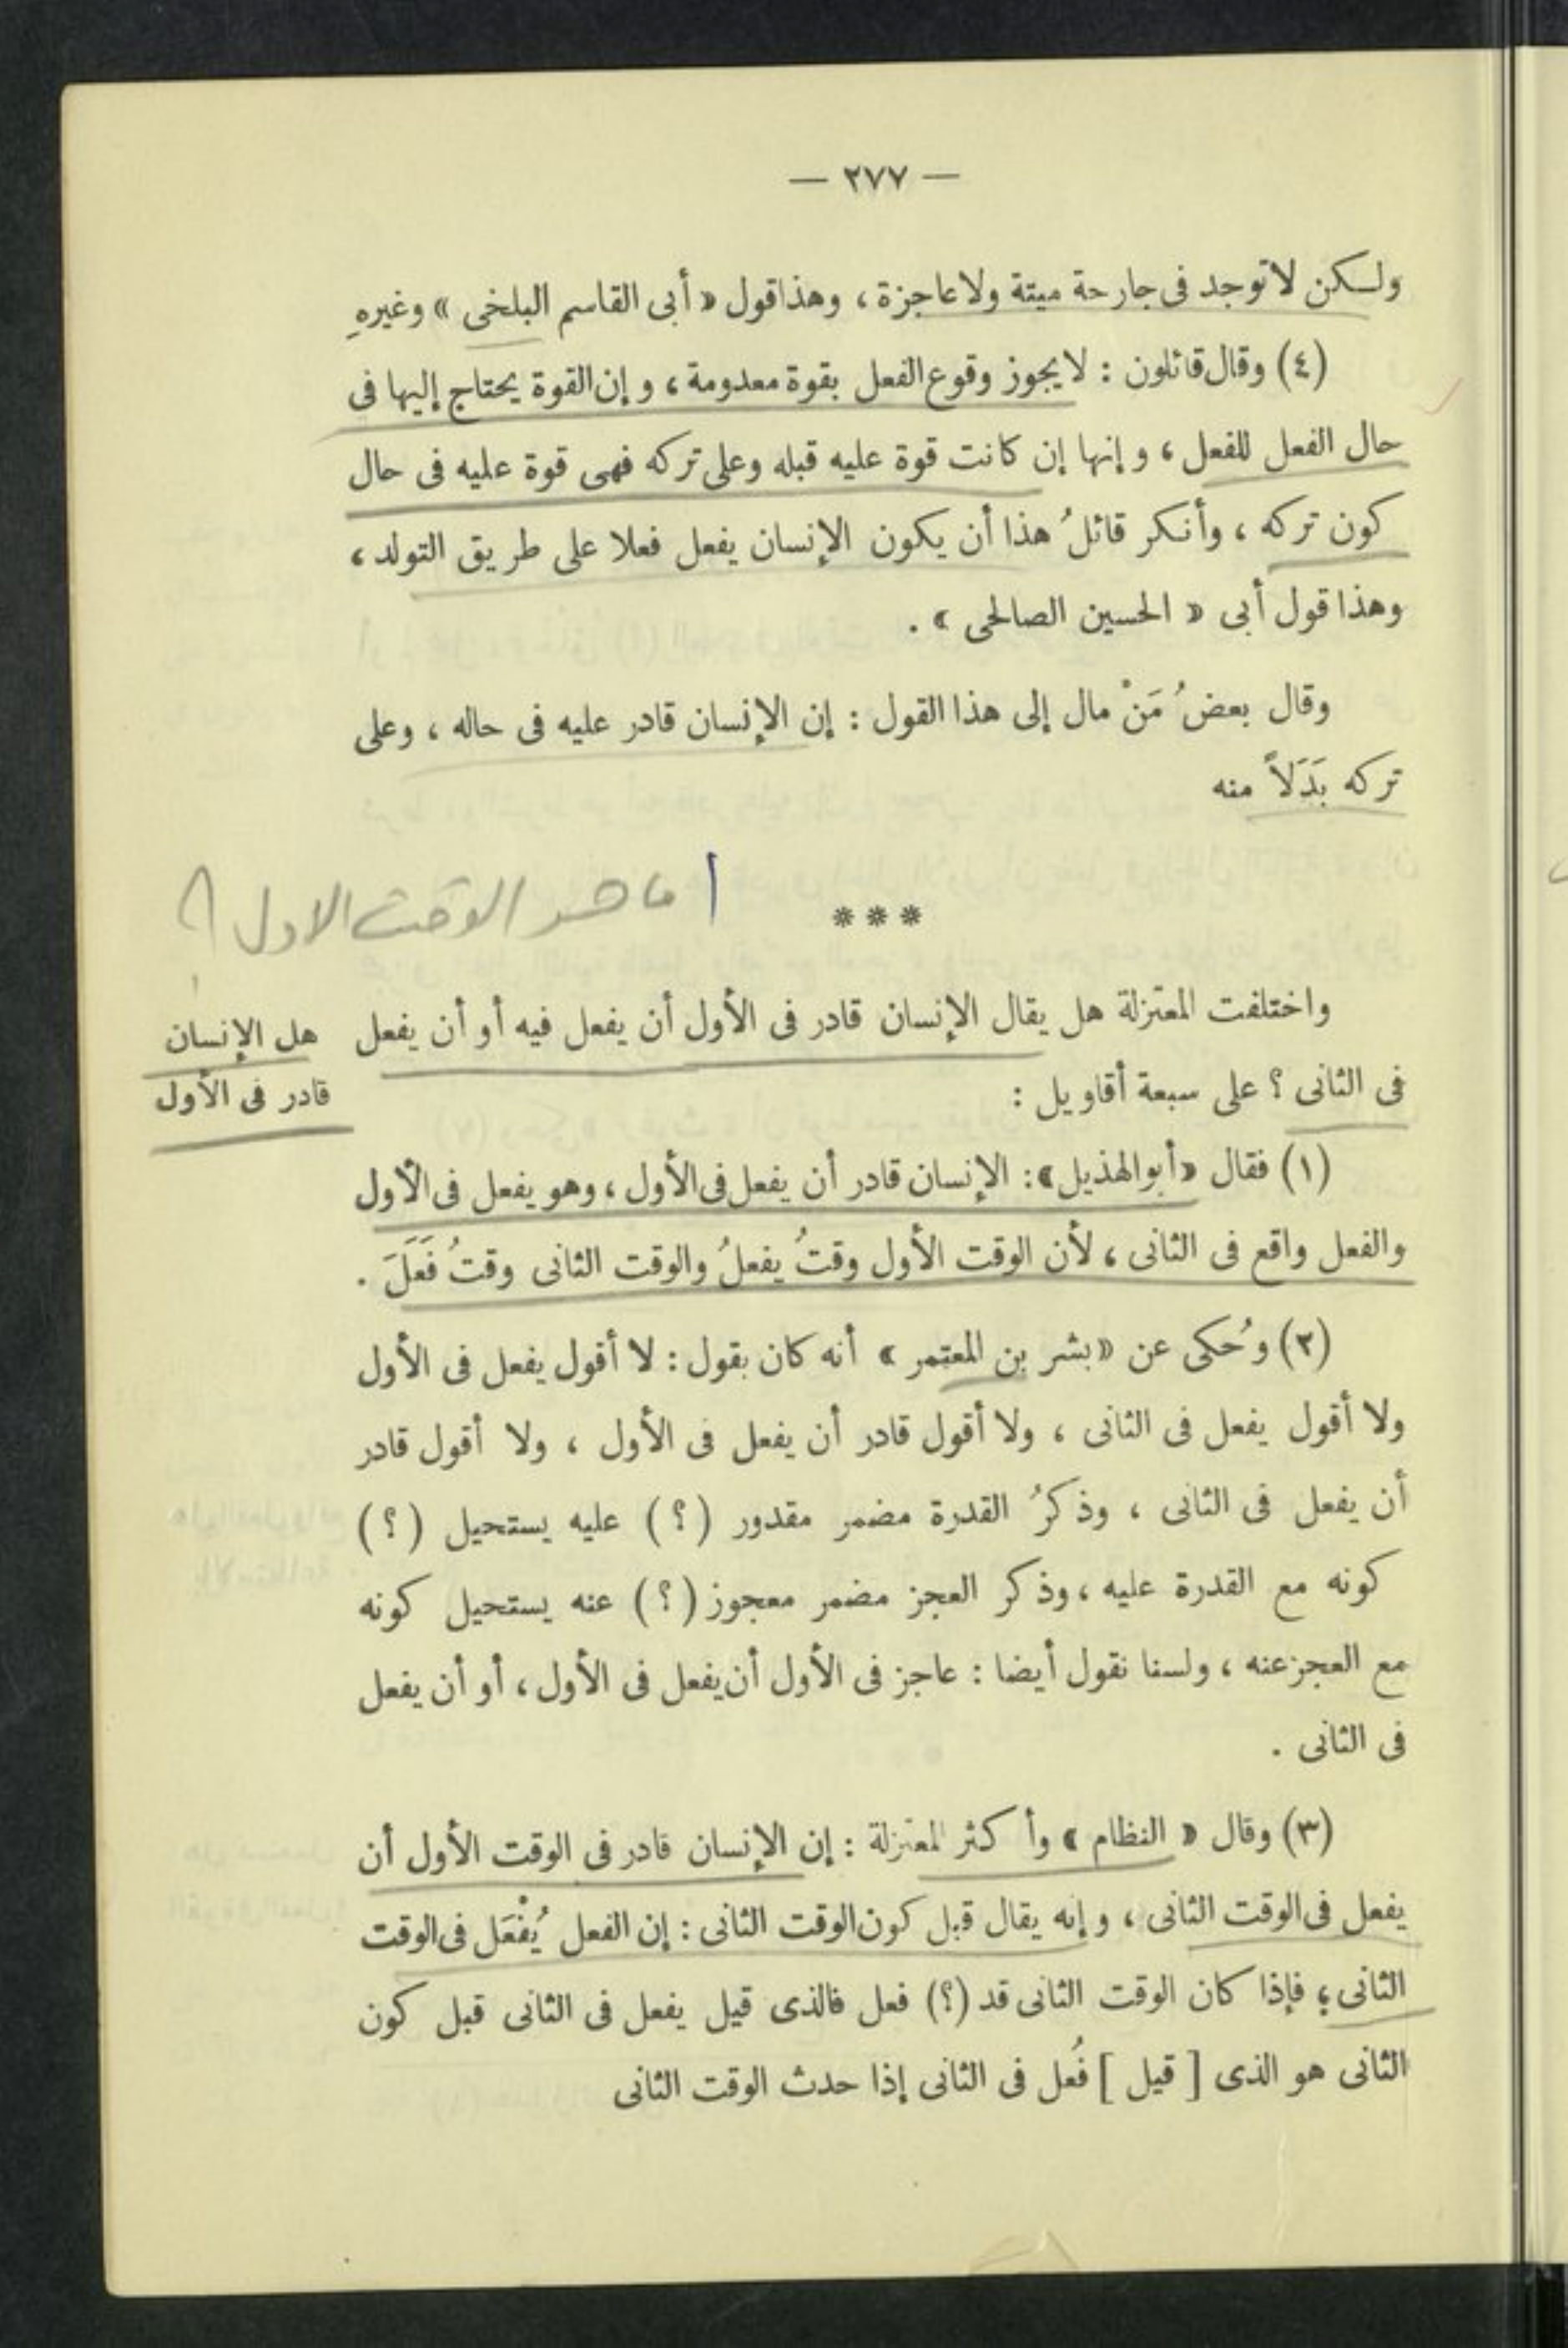 — ٢٧٧ —
ولكن لا توجد فى جارحة ميتة ولا عاجزة ، وهذا قول « أبى القاسم البلخى » وغيرهِ
(٤) وقال قائلون : لا يجوز وقوع الفعل بقوة معدومة ، وإن القوة يحتاج إليها فى
حال الفعل للفعل ، وإنها إن كانت قوة عليه قبله وعلى تركه فهى قوة عليه فى حال
كون تركه ، وأنكر قائلُ هذا أن يكون الإنسان يفعل فعلا على طريق التولد ،
وهذا قول أبى « الحسين الصالحى » .
وقال بعضُ مَنْ مال إلى هذا القول : إن الإنسان قادر عليه فى حاله ، وعلى
تركه بَدَلاً منه
***
ما هو الوقت الاول ؟
واختلفت المعتزلة هل يقال الإنسان قادر فى الأول أن يفعل فيه أو أن يفعل
فى الثانى ؟ على سبعة أقاويل :
هل الإنسان
قادر فى الأول
(١) فقال «أبوالهذيل» : الإنسان قادر أن يفعل فى الأول ، وهو يفعل فى الأول
والفعل واقع فى الثانى ، لأن الوقت الأول وقتُ يفعلُ والوقت الثانى وقتُ فَعَلَ .
(٢) وحُكى عن «بشر بن المعتمر» أنه كان بقول : لا أقول يفعل فى الأول
ولا أقول يفعل فى الثانى ، ولا أقول قادر أن يفعل فى الأول ، ولا أقول قادر
أن يفعل فى الثانى ، وذكرُ القدرة مضمر مقدور (؟) عليه يستحيل (؟)
كونه مع القدرة عليه ، وذكر العجز مضمر معجوز (؟) عنه يستحيل كونه
مع العجز عنه ، ولسنا نقول أيضا : عاجز فى الأول أن يفعل فى الأول ، أو أن يفعل
فى الثانى .
(٣) وقال « النظام » وأكثر المعتزلة : إن الإنسان قادر فى الوقت الأول أن
يفعل فى الوقت الثانى ، وإنه يقال قبل كون الوقت الثانى : إن الفعل يُفْعَل فى الوقت
الثانى ؛ فإذا كان الوقت الثانى قد (؟) فعل فالذى قيل يفعل فى الثانى قبل كون
الثانى هو الذى [ قيل ] فُعل فى الثانى إذا حدث الوقت الثانى